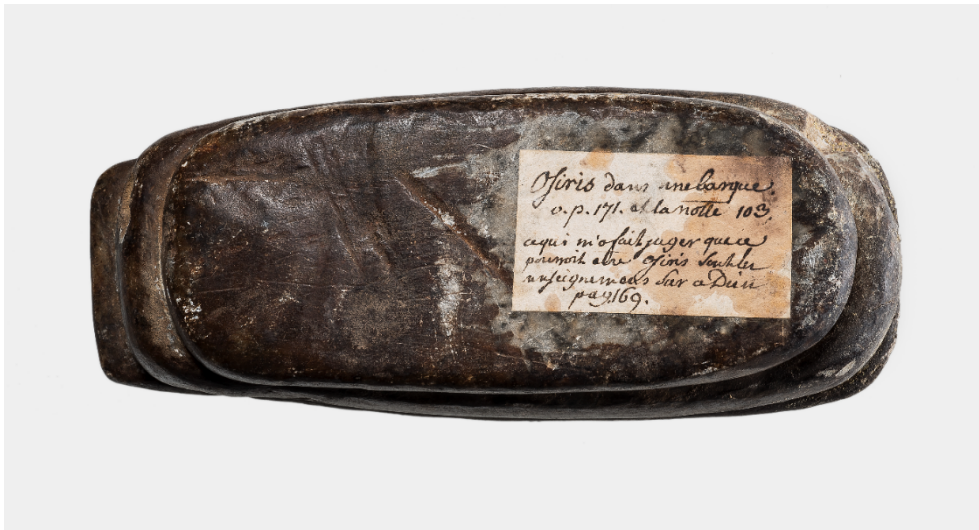 Osiris dans une barque.
v. p. 171. et la notte 103
ce qui m'a fait juger que ce
pourroit etre Osiris sont les
enseignemens sur ce Dieu
pag. 169.